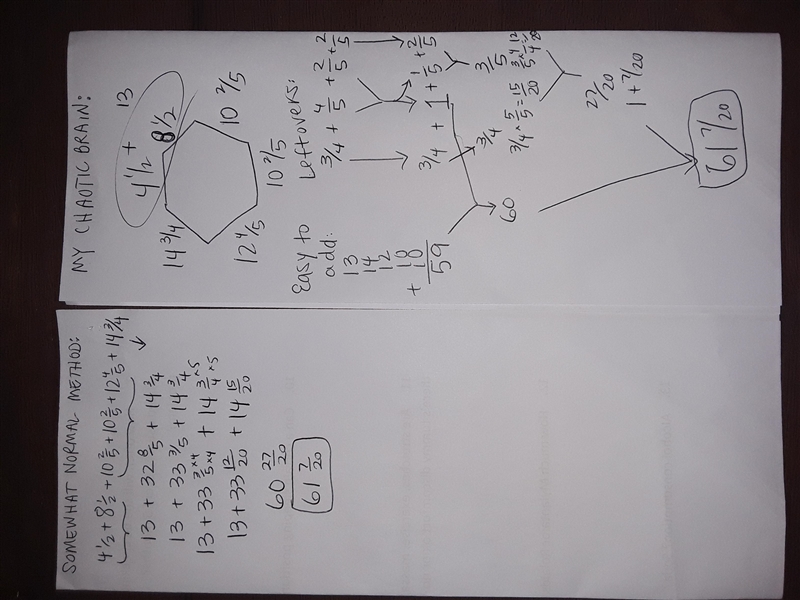 SOMEWHAT NORMAL METHOD:
4 1/2 + 8 1/2 + 10 2/5 + 10 2/5 + 12 4/5 + 14 3/4
13 + 32 8/5 + 14 3/4
13 + 33 3/5 + 14 3/4
13 + 33 3×4/5×4 + 14 3×5/4×5
13 + 33 12/20 + 14 15/20
60 27/20
61 7/20
MY CHAOTIC BRAIN:
4 1/2 + 13
8 1/2
14 3/4
10 2/5
12 4/5
10 2/5
Easy to add:
13
14
12
10
+ 10
59
60
Leftovers:
3/4 + 4/5 + 2/5 + 2/5
3/4 + 1 + 1/5 + 2/5
3/4
3/5
3/4 × 5/5 = 15/20
3/5 × 4/4 = 12/20
27/20
1 + 7/20
61 7/20